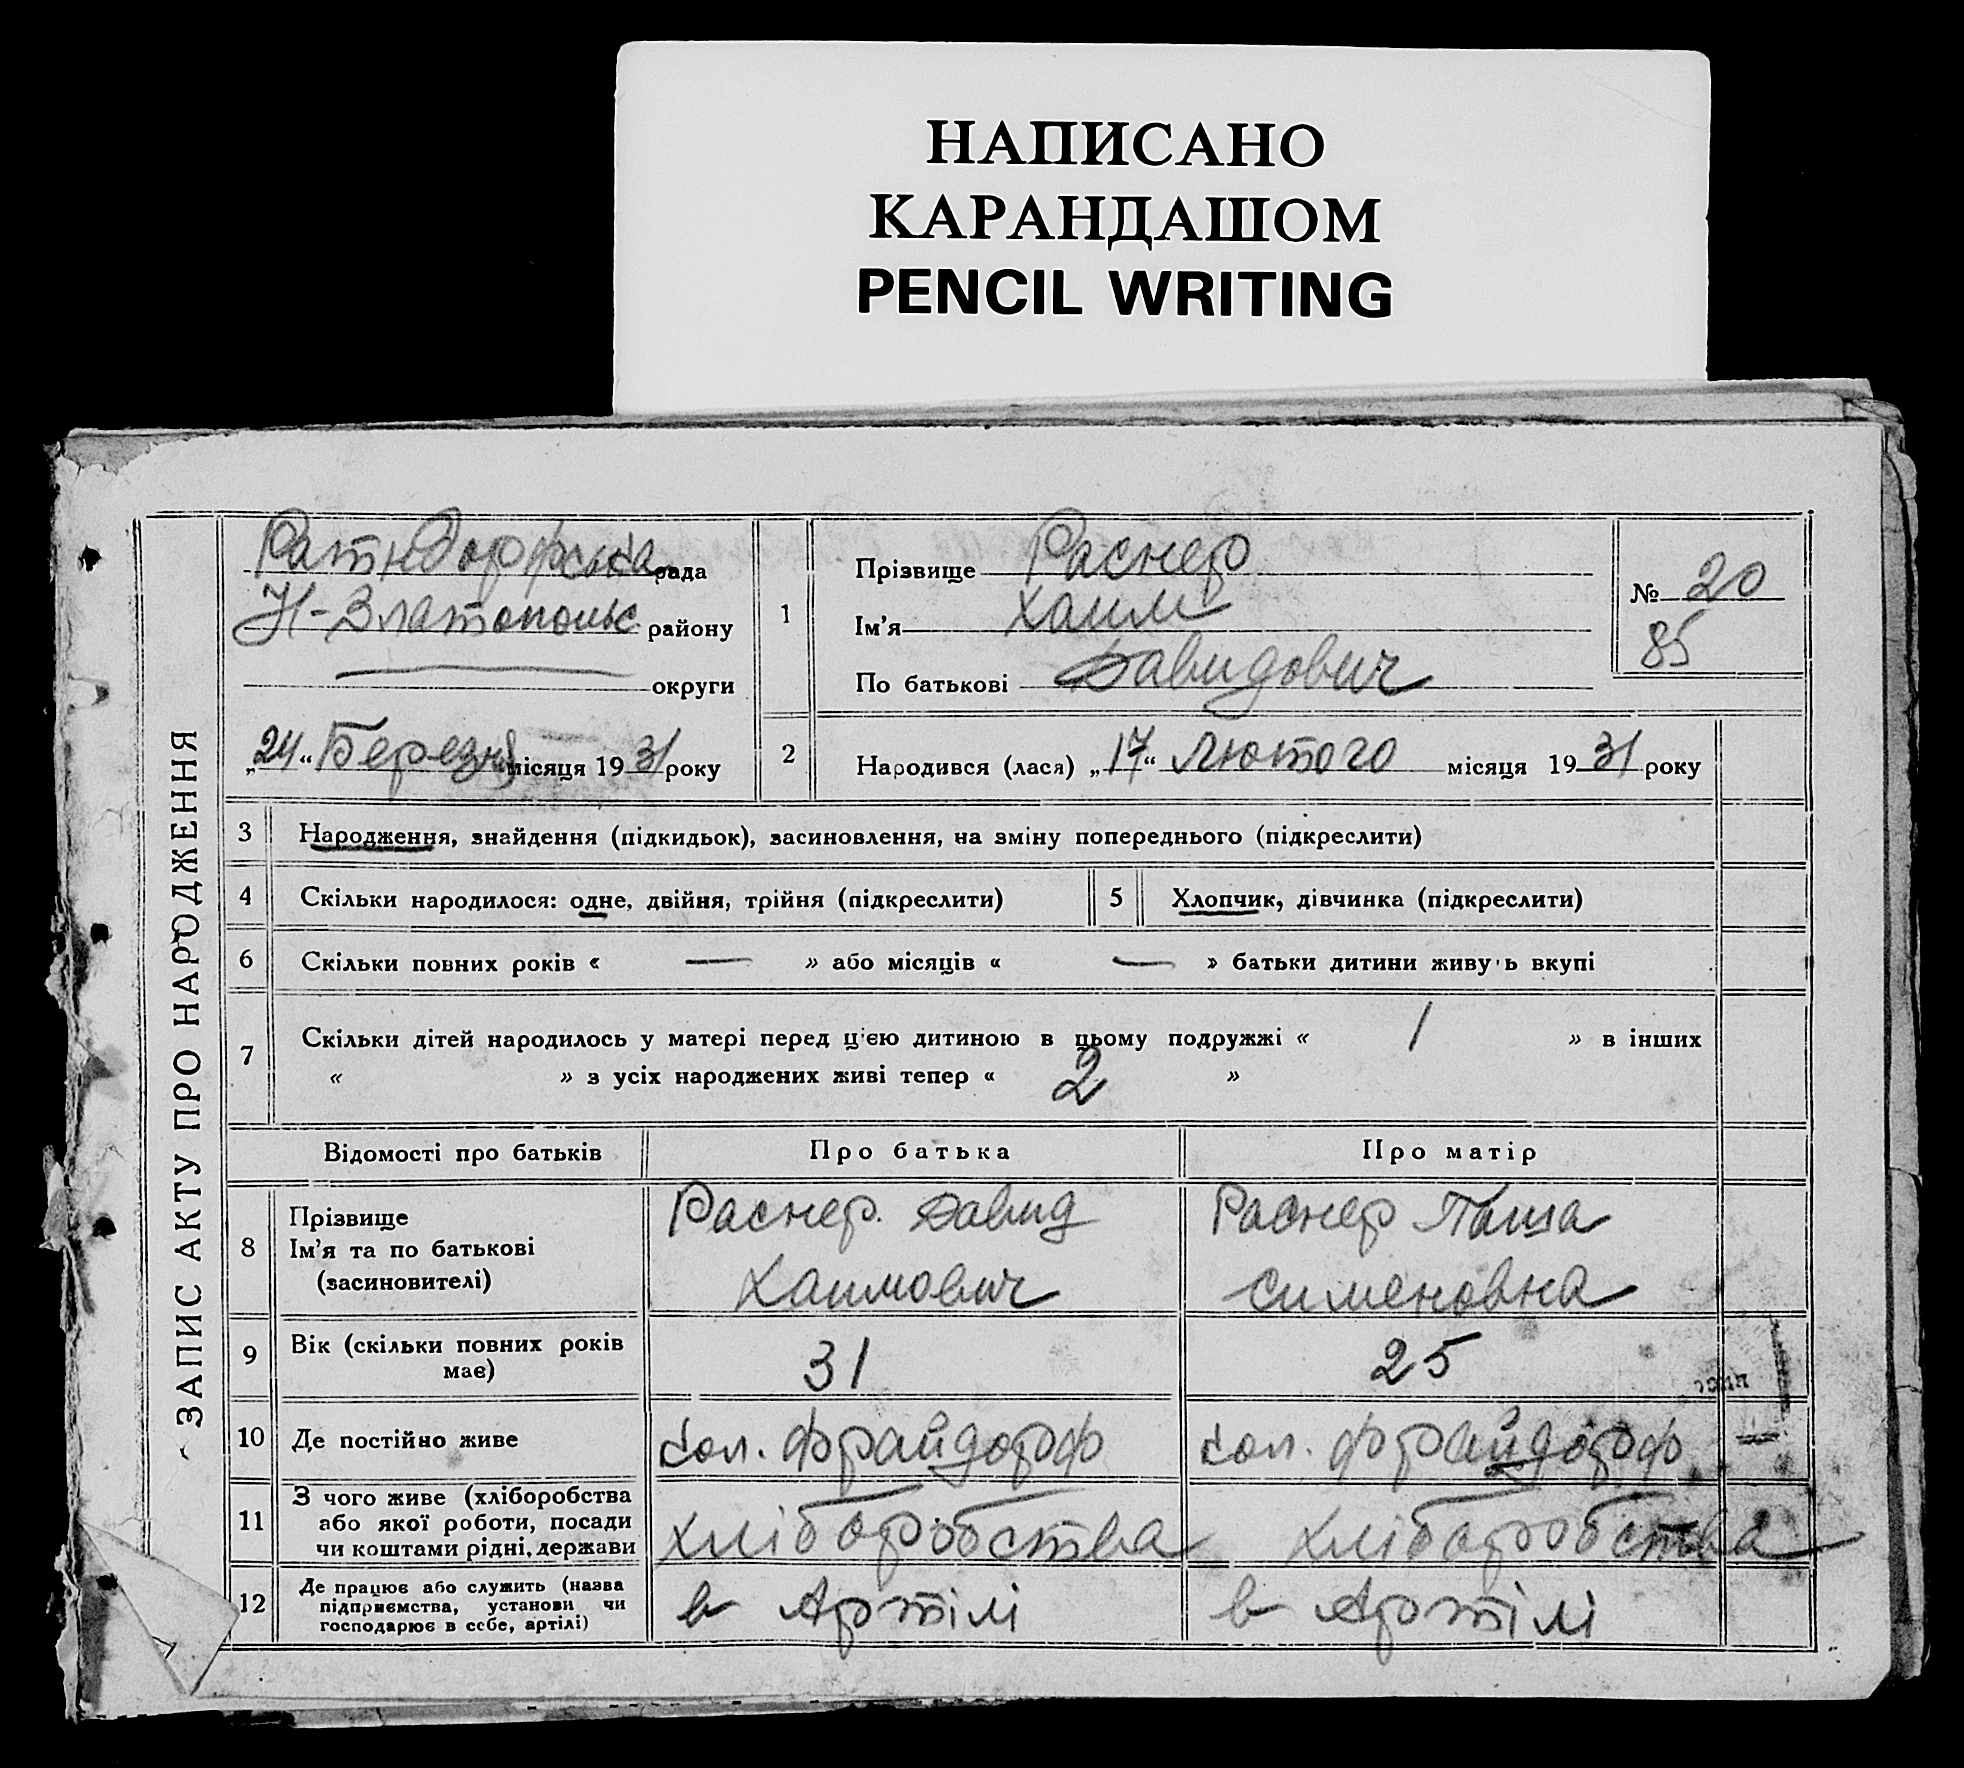 НАПИСАНО
КАРАНДАШОМ
PENCIL WRITING
ЗАПИС АКТУ ПРО НАРОДЖЕННЯ
Ратндорфська рада
Н-Златопольс району
округи
„24“ Березня місяця 1931 року
1
Прізвище Раснер
Ім’я Хаим
По батькові Давидович
№ 20
85
2 Народився (лася) „17“ Лютого місяця 1931 року
3 Народження, знайдення (підкидьок), засиновлення, на зміну попереднього (підкреслити)
4 Скільки народилося: одне, двійня, трійня (підкреслити) 5 Хлопчик, дівчинка (підкреслити)
6 Скільки повних років « — » або місяців « — » батьки дитини живуть вкупі
7 Скільки дітей народилось у матері перед цією дитиною в цьому подружжі « 1 » в інших
« » з усіх народжених живі тепер « 2 »
Відомості про батьків Про батька Про матір
8 Прізвище
Ім’я та по батькові
(засиновителі)
Раснер Давид
Хаимович
Раснер Паша
Сименовна
9 Вік (скільки повних років
має)
31 25
10 Де постійно живе кол. Фрайдорф кол. Фрайдорф
11 З чого живе (хліборобства
або якої роботи, посади
чи коштами рідні, держави
хліборобства хліборобства
12 Де працює або служить (назва
підприємства, установи чи
господарює в себе, артілі)
в Артілі в Артілі